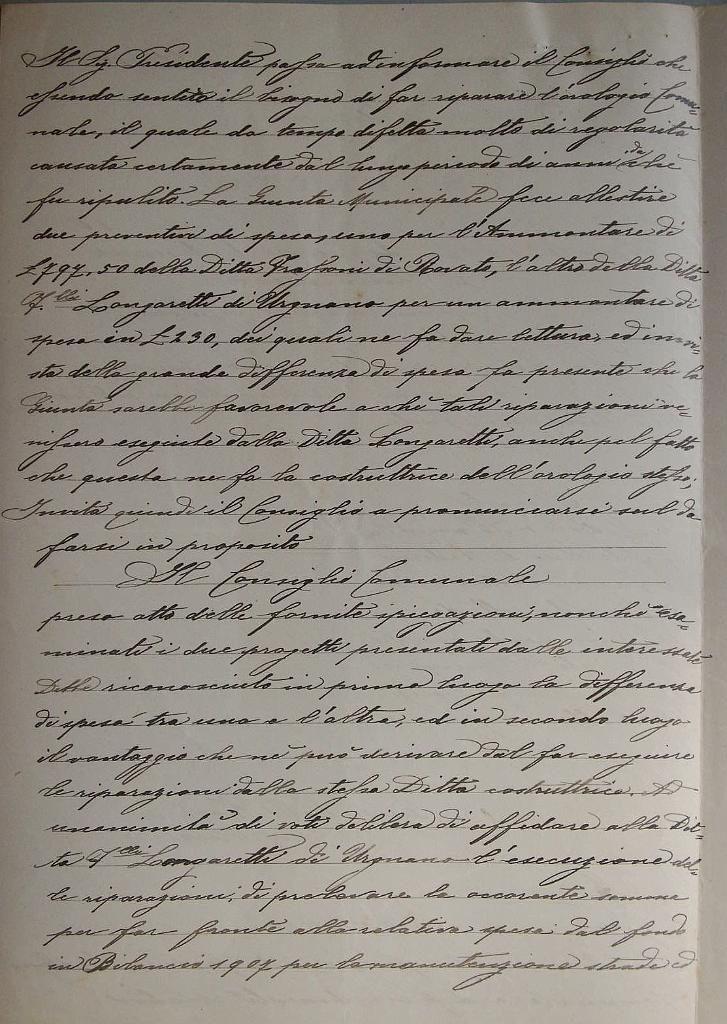 Il Sig. Presidente, passa ad informare il Consiglio che
essendo sentito il bisogno di far riparare l'orologio Comu-
nale, il quale da tempo difetta molto di regolarità
causata certamente dal lungo periodo di anni da che
fu ripulito. La Giunta Municipale fece allestire
due preventivi di spesa, uno per l'Ammontare di
£ 797,50 dalla Ditta Frassoni di Rovato, l'altro della Ditta
F.lli Longaretti di Urgnano per un ammontare di
spesa in £ 230, dei quali ne fa dare lettura, ed in vi-
sta della grande differenza di spesa fa presente che la
Giunta sarebbe favorevole a chè tali riparazioni ve-
nissero eseguite dalla Ditta Longaretti, anche pel fatto
che questa ne fa la costruttrice dell'orologio stesso,
Invita quindi il Consiglio a pronunciarsi sul da
farsi in proposito
Il Consiglio Comunale
preso atto delle fornite spiegazioni, nonchè esa-
minati i due progetti presentati dalle interessate
Ditte riconosciuto in primo luogo la differenza
di spesa tra una e l'altra, ed in secondo luogo
il vantaggio che nè può derivare dal far eseguire
le riparazioni dalla stessa Ditta costruttrice. Ad
unanimità di voti delibera di affidare alla Dit-
ta F.lli Longaretti di Urgnano l'esecuzione del-
le riparazioni, di prelevare la occorente somma
per far fronte alla relativa spesa dal fondo
in Bilancio 1907 per la manutenzione strade ed